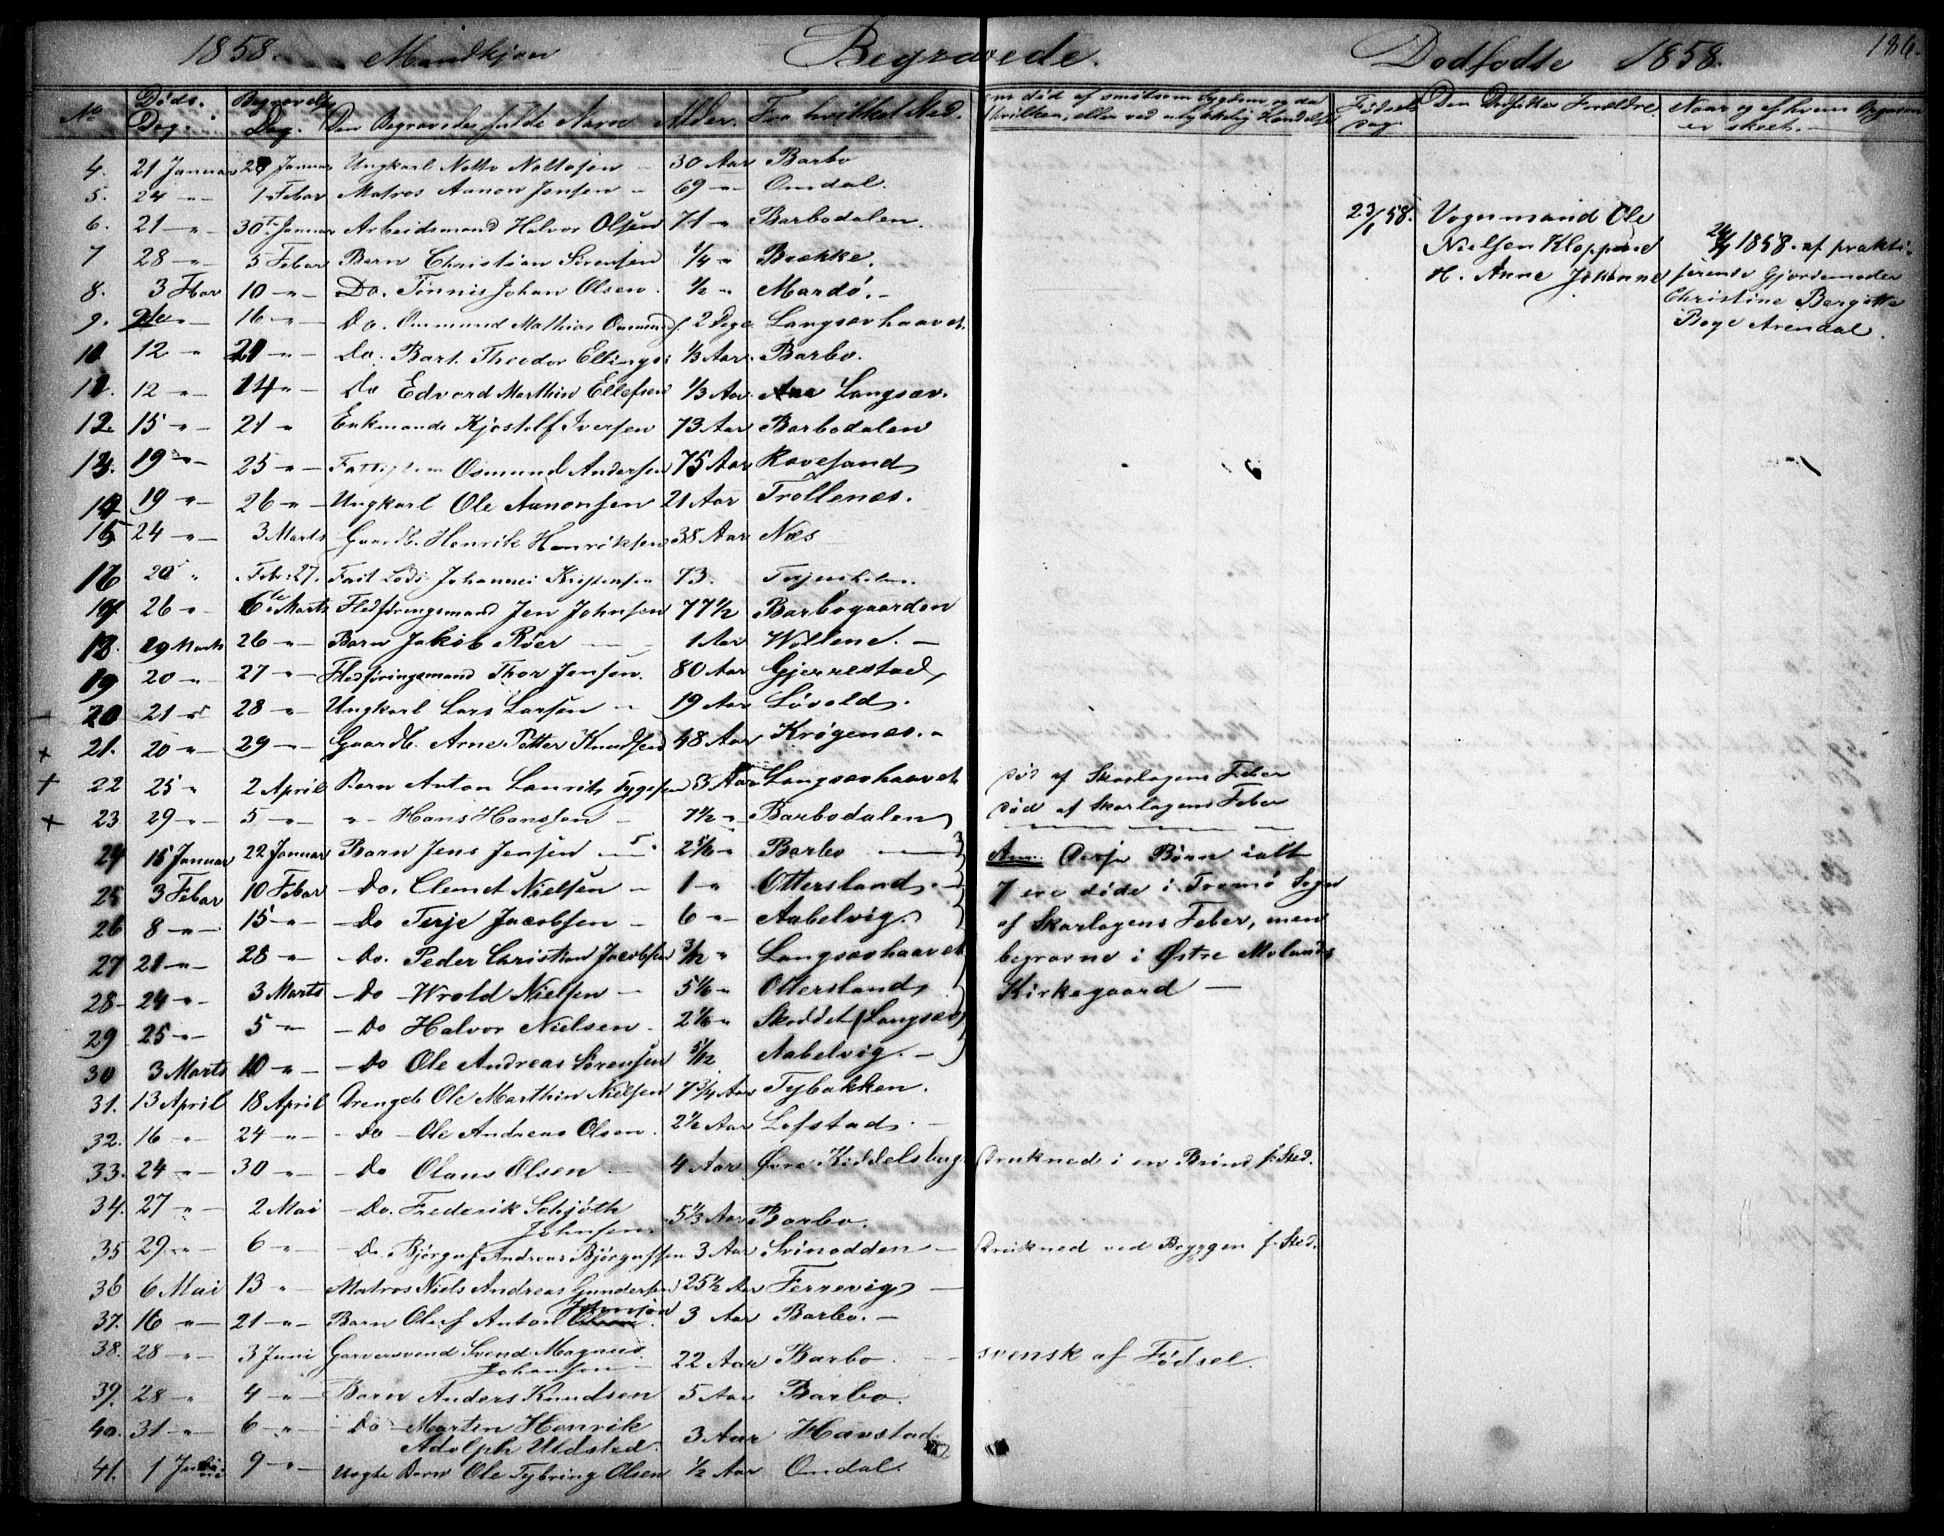 1858. Mandkjøn Begravede. Dødfødte 1858. 186.
No Døds. Dag. Begravelses Dag. Den Begravedes fulde Navn Alder. Fra hvilket Sted. om død af smitsom Sygdom og da hvilken, eller ved ulykkelig Hændelse Fødsels Dag Den Dødfødtes Forældre. Naar og af hvem Opgaven er skeet.
4. 21 Januar 28 Januar Ungkarl Notto Nottosen 30 Aar Barbo
5. 24 " 1 Febar Matros Aanon Jensen 69 " Omdal.
6. 21 " 30te Januar Arbeidsmand Halvor Olsen 71 " Barbodalen.
7 28 " 5 Febar Barn Christian Sørensen 1/4 " Brække.
8. 3 Febar 10 " Do. Tønnes Johan Olsen. 1/2 " Mardø.
9. 16 " Do. Ommund Mathias 2 Dage Langsævhaavet.
10. 12 " 21 " Do. Bart. Theodor Ellings. 1/3 Aar. Barbo.
11. 12 " 14 " Do Edvard Marthin Ellefsen 1/3 Aar. Langsæv.
12. 15 " 21 " Enkemand Kjøstolf Iversen 73 Aar Barbodalen
13. 19 " 25 " Osmund Andersen 75 Aar Ravesand
14 19 " 26 " Ungkarl Ole Aanonsen 21 Aar Trollenæs.
15 24 " 3 Marts Gaardb. Henrik Henriksen 38 Aar Næs
16 20 " Febr. 27. Johannes 73.
17 26 " 6te Marts Flodføringsmand Jen Johnsen 77 1/2 Barbogaarden
18. 19 Marts 26 " Barn Jakob Röer 1 Aar Wollene.
19 20 " 27 " Flodføringsmand Thor Jensen. 80 Aar Gjerrestad
20 21 " 28 " Ungkarl Lars Larsen 19 Aar Løvold.
+ 21. 20 " 29 " Gaardb. Arne Petter Knudsen 48 Aar Krøgenes.
+ 22 25 " 2 April Barn Anton Laurits Tygesen 3 Aar Langsævhaavet død af Skarlagens Feber
+ 23 29 " 5 " " Hans Hansen 7 1/2 " Barbodalen død af Skarlagens Feber
24 15 Januar 22 Januar Barn Jens Jensen 2 5/6 " Barbo Anm: Disse Børn ialt
25 3 Febar 10 Febar Do. Clemet Nielsen 1 " Ottersland. 7 ere døde i Tromø Sogn
26 8 " 15 " Do Terje Jacobsen 6 " Aabelvig. af Skarlagens Feber, men
27 21 " 28 " Do. Peder Christian Jacobsen 3/12 " Langsævhaavet begravne i Østre Molands
28 24 " 3 Marts Do Wrold Nielsen 5 1/6 " Ottersland Kirkegaard
29 25 " 5 " Do Halvor Nielsen 2 1/6 " Skoddet (Langsæv)
30 3 Marts 10 " Do Ole Andreas Sørensen 5/12 Aabelvig.
31. 13 April 18 April Drengeb. Ole Marthin Nielsen 7 3/4 Aar Tybakken.
32. 16 " 24 " Do Ole Andreas Olsen. 2 1/2 Aar Lofstad.
33. 24 " 30 " Do Olaus Olsen 4 Aar Øvre Kiddelsbug. Druknet i en Brønd f. Sted.
34. 27 " 2 Mai Do. Frederik Schjøth Johnsen. 5 1/3 Aar Barbo.
35 29 " 6 " Do. Bjørguf Andreas Bjørgufsen 3 Aar Svinodden Druknet ved Bryggen f. Sted.
36 6 Mai 13 " Matros Niels Andreas Gundersen 25 1/2 Aar Terrevig
37. 16 " 21 " Barn Oluf Anton Johnsen. 3 Aar Barbo.
38. 28 " 3 Juni Garversvend Svend Magnus Johansen 22 Aar Barbo svensk af Fødsel.
39. 28 " 4 " Barn Anders Knudsen 5 Aar Barbo.
40. 31 " 6 " Do Martin Henrik Adolph Uldsted. 3 Aar Havstad
41. 1 Juni 9 " Uægte Barn Ole Tybring Olsen 1/2 Aar Omdal
23/1 58. Vognmand Ole
Nielsen Kloppene
H. Anne Johanne
1858 af prakti-
serende Gjordemoder
Christine Bergitte
Boye Arendal.